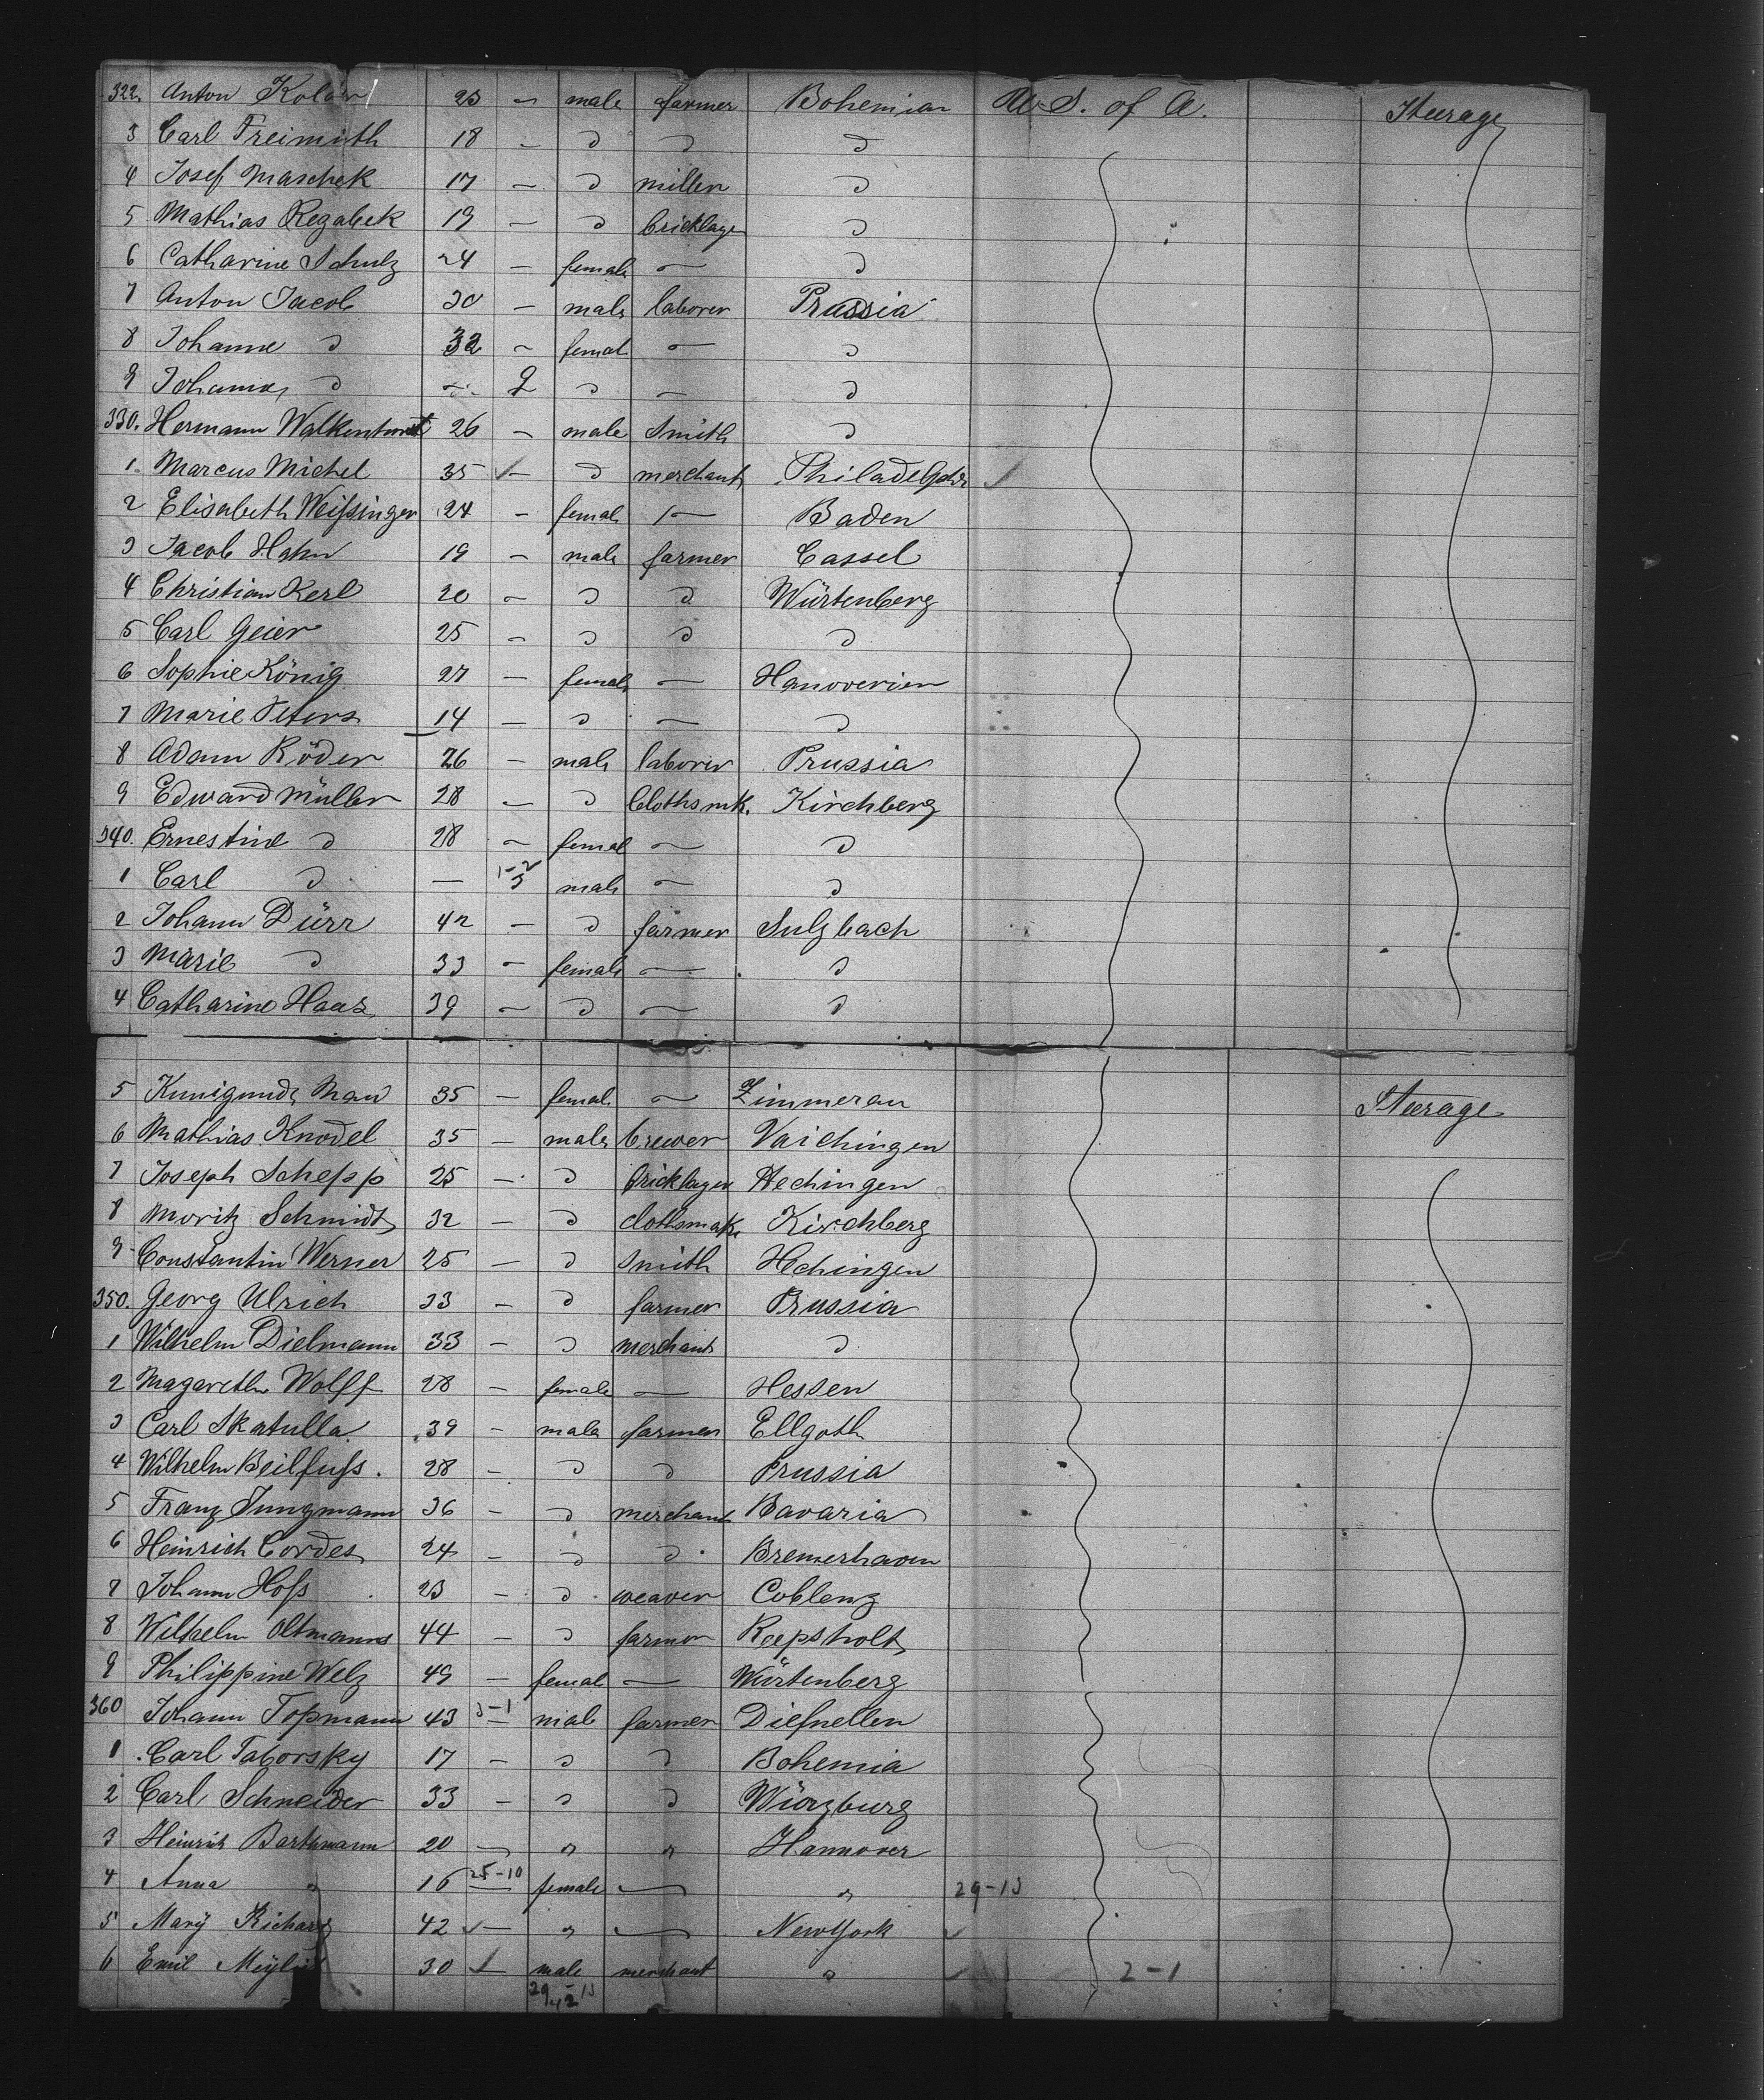 322. Anton Kolar 23 — male farmer Bohemian U. S. of A. Steerage
3 Carl Freimuth 18 — " " "
4 Josef Maschek 17 — " miller "
5 Mathias Regabek 19 — " bricklayer "
6 Catharine Schulz 24 — female — "
7 Anton Jacob 30 — male laborer Prussia
8 Johanne " 32 — female — "
9 Johanna " — 2 " — "
330. Hermann 26 — male Smith "
1 Marcus Michel 35 — " merchant Philadelphia
2 Elisabeth Weißinger 24 — female — Baden
3 Jacob Hahn 19 — male farmer Cassel
4 Christian Kerl 20 — " " Würtenberg
5 Carl Geier 25 — " " "
6 Sophie König 27 — female — Hanoverien
7 Marie Peters 14 — " — "
8 Adam Röder 26 — male laborer Prussia
9 Edward Müller 28 — " Clothsmk. Kirchberg
340. Ernestine " 28 — female — "
1 Carl " — 3 male — "
2 Johann Dürr 42 — " farmer Sulzbach
3 Marie " 33 — female — "
4 Catharine Haas 39 — " — "
5 Kunigunde Mau 35 — female — Zimmerau Steerage
6 Mathias Knodel 35 — male brewer Vaichingen
7 Joseph Schepp 25 — " bricklayer Hechingen
8 Moritz Schmidt 32 — " clothsmak Kirchberg
9 Constantin Werner 25 — " Smith Hchingen
350. Georg Ulrich 33 — " farmer Prussia
1 Wilhelm Dielmann 33 — " merchant "
2 Magarethe Wolff 28 — female — Hessen
3 Carl Skatulla 39 — male farmer Ellgoth
4 Wilhelm Beilfuß. 28 — " " Prussia
5 Franz Jungmann 36 — " merchant Bavaria
6 Heinrich Cordes 24 — " " Bremerhaven
7 Johann Hoß 23 — " weaver Coblenz
8 Wilhelm Oltmanns 44 — " farmer Reepsholt
9 Philippine Welz 49 — female — Würtenberg
360 Johann Topmann 43 3-1 — male farmer
1 Carl Taborsky 17 — " " Bohemia
2 Carl Schneider 33 — " " Würzburg
3 Heinrich Barthmann 20 — " " Hannover
4 Anna " 16 25-10 — female — " 29-13
5 Mary Richard 42 — " — New York
6 Emil 30 — male merchant " 2-1
29 13